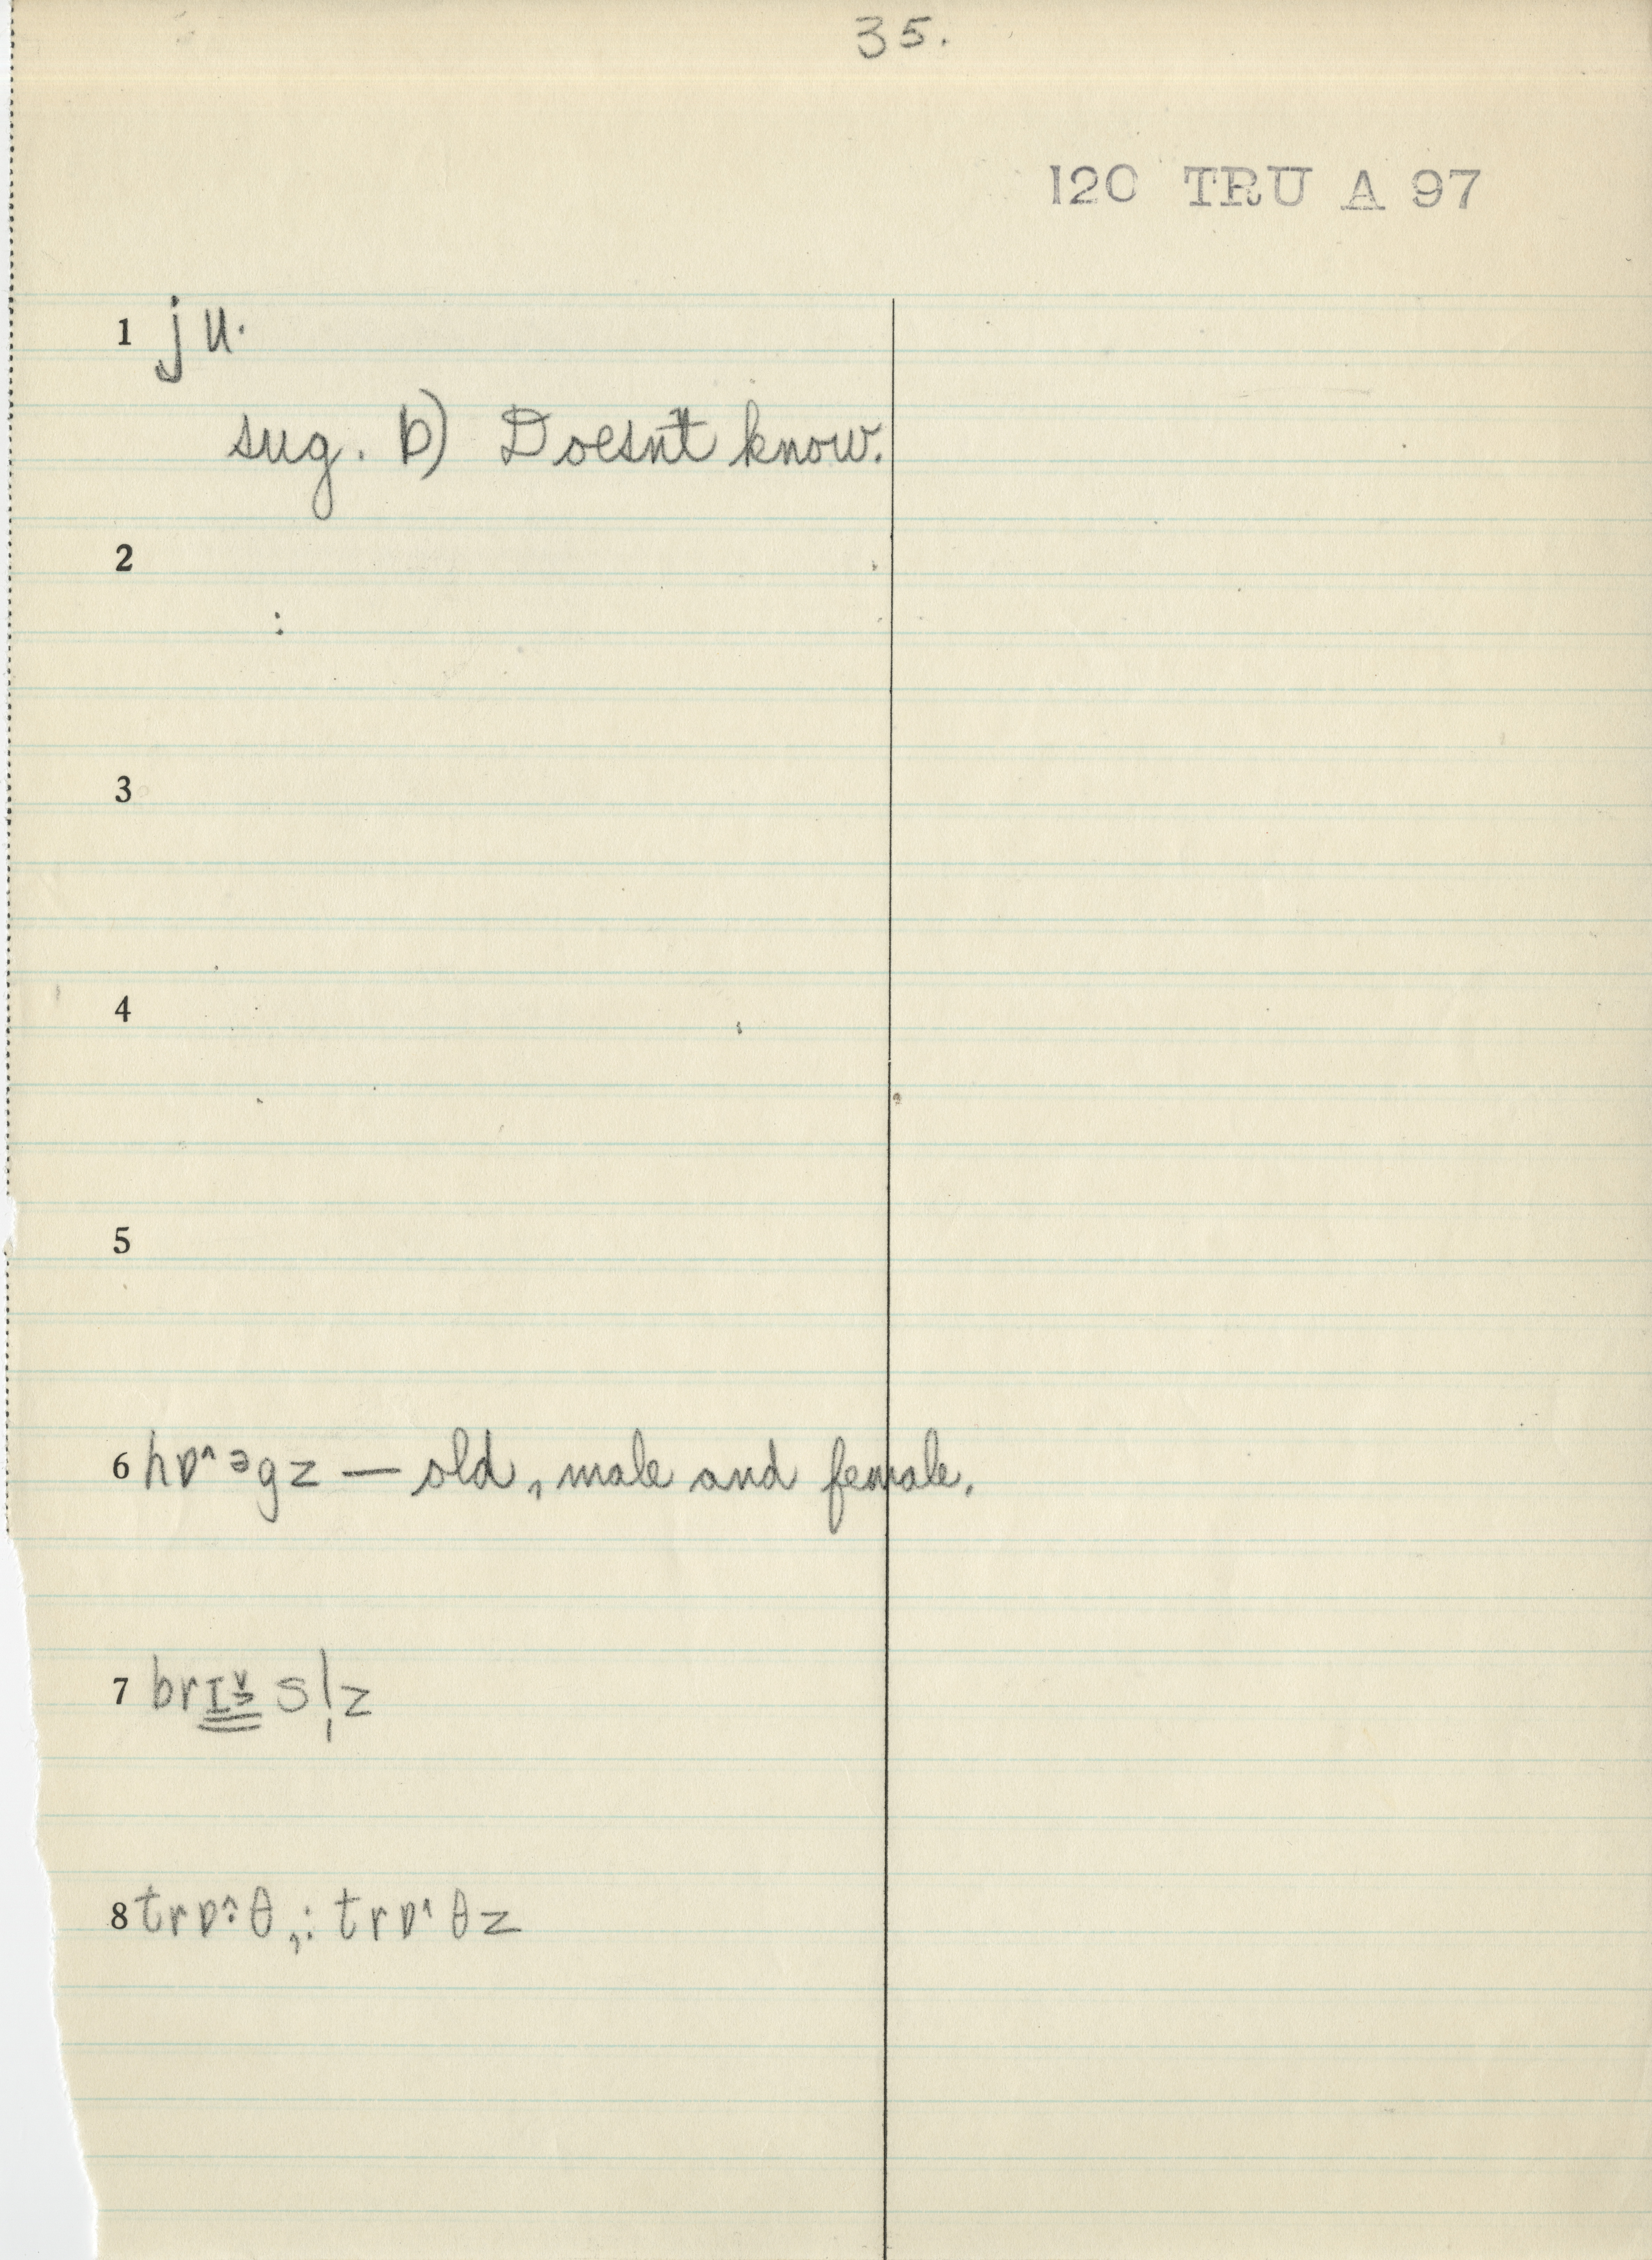 35.
120 TRU A 97
1 ju·
sug. b) Doesn't know.
2
:
3
4
5
6 hɒ^ əgz — old, male and female.
7 brɪ s l̩z
8 trɒ^: θ,: trɒ^· θz